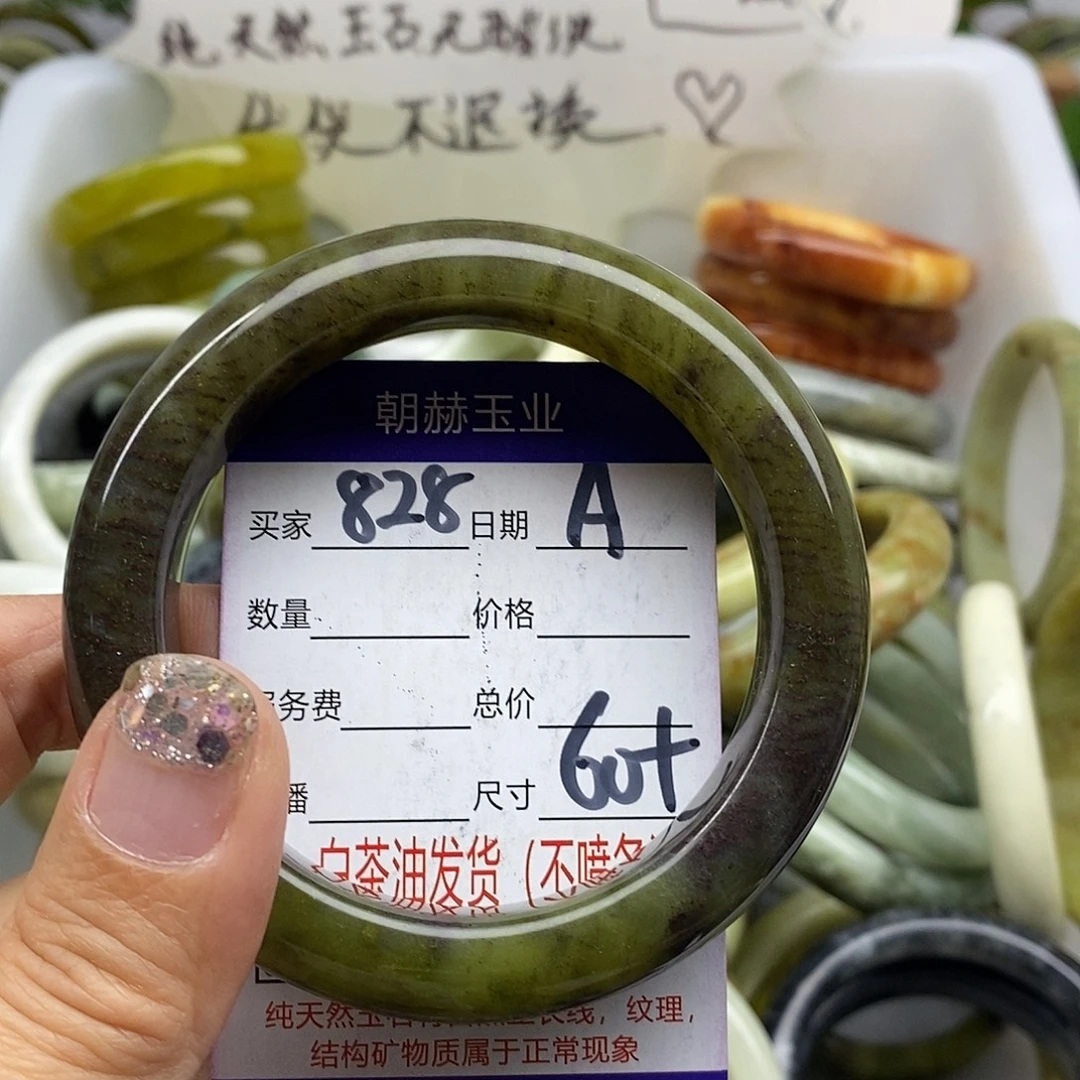 纯天然玉石无酸洗
不退换
朝赫玉业
买家 828 日期 A
数量 价格
务费 总价
播 尺寸 60+
白茶油发货（不喷
纯天然玉石 线，纹理，
结构矿物质属于正常现象